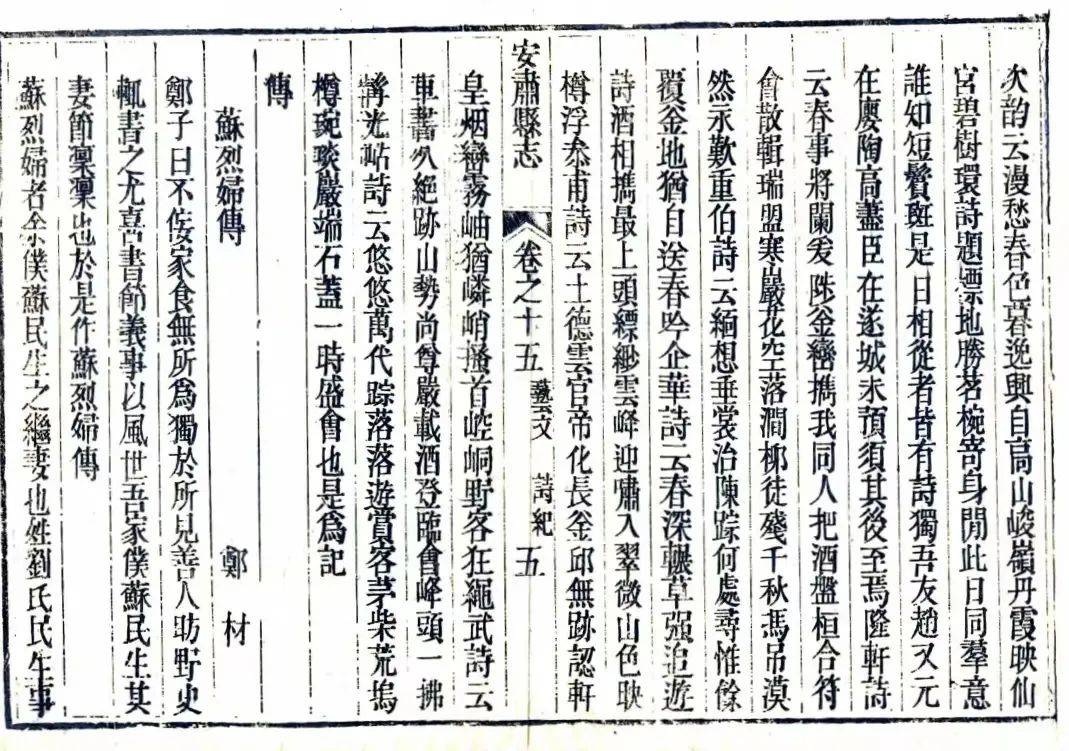 次韵云漫愁春色暮逸興自高山峻嶺丹霞映仙
宮碧樹環詩題摽地勝茗椀寄身閒此日同羣意
誰知短鬢斑是日相從者皆有詩獨吾友趙又元
在廮陶高藎臣在遂城未預須其後至焉隆軒詩
云春事將闌爰陟釜巒擕我同人把酒盤桓合符
會散輯瑞盟寒巖花空落澗柳徒殘千秋馮吊漠
然永歎重伯詩云緬想垂裳治陳踪何處尋惟餘
覆釜地猶自送春吟企華詩云春深輾草强追遊
詩酒相擕最上頭縹緲雲峰迎嘯入翠微山色映
樽浮泰甫詩云土德雲官帝化長釜邱無跡認軒
安肅縣志
卷之十五 藝文 詩紀 五
皇烟巒霧岫猶嶙峭搔首崆峒野客狂繩武詩云
車書久絕跡山勢尚尊嚴載酒登臨會峰頭一拂
髯光岵詩云悠悠萬代踪落落遊賞客茅柴荒塢
樽琬琰嚴端石蓋一時盛會也是爲記
傳
蘇烈婦傳 鄭材
鄭子曰不佞家食無所爲獨於所見善人助野史
輒書之尤喜書節義事以風世吾家僕蘇民生其
妻節凛凛也於是作蘇烈婦傳
蘇烈婦者余僕蘇民生之繼妻也姓劉氏民生事